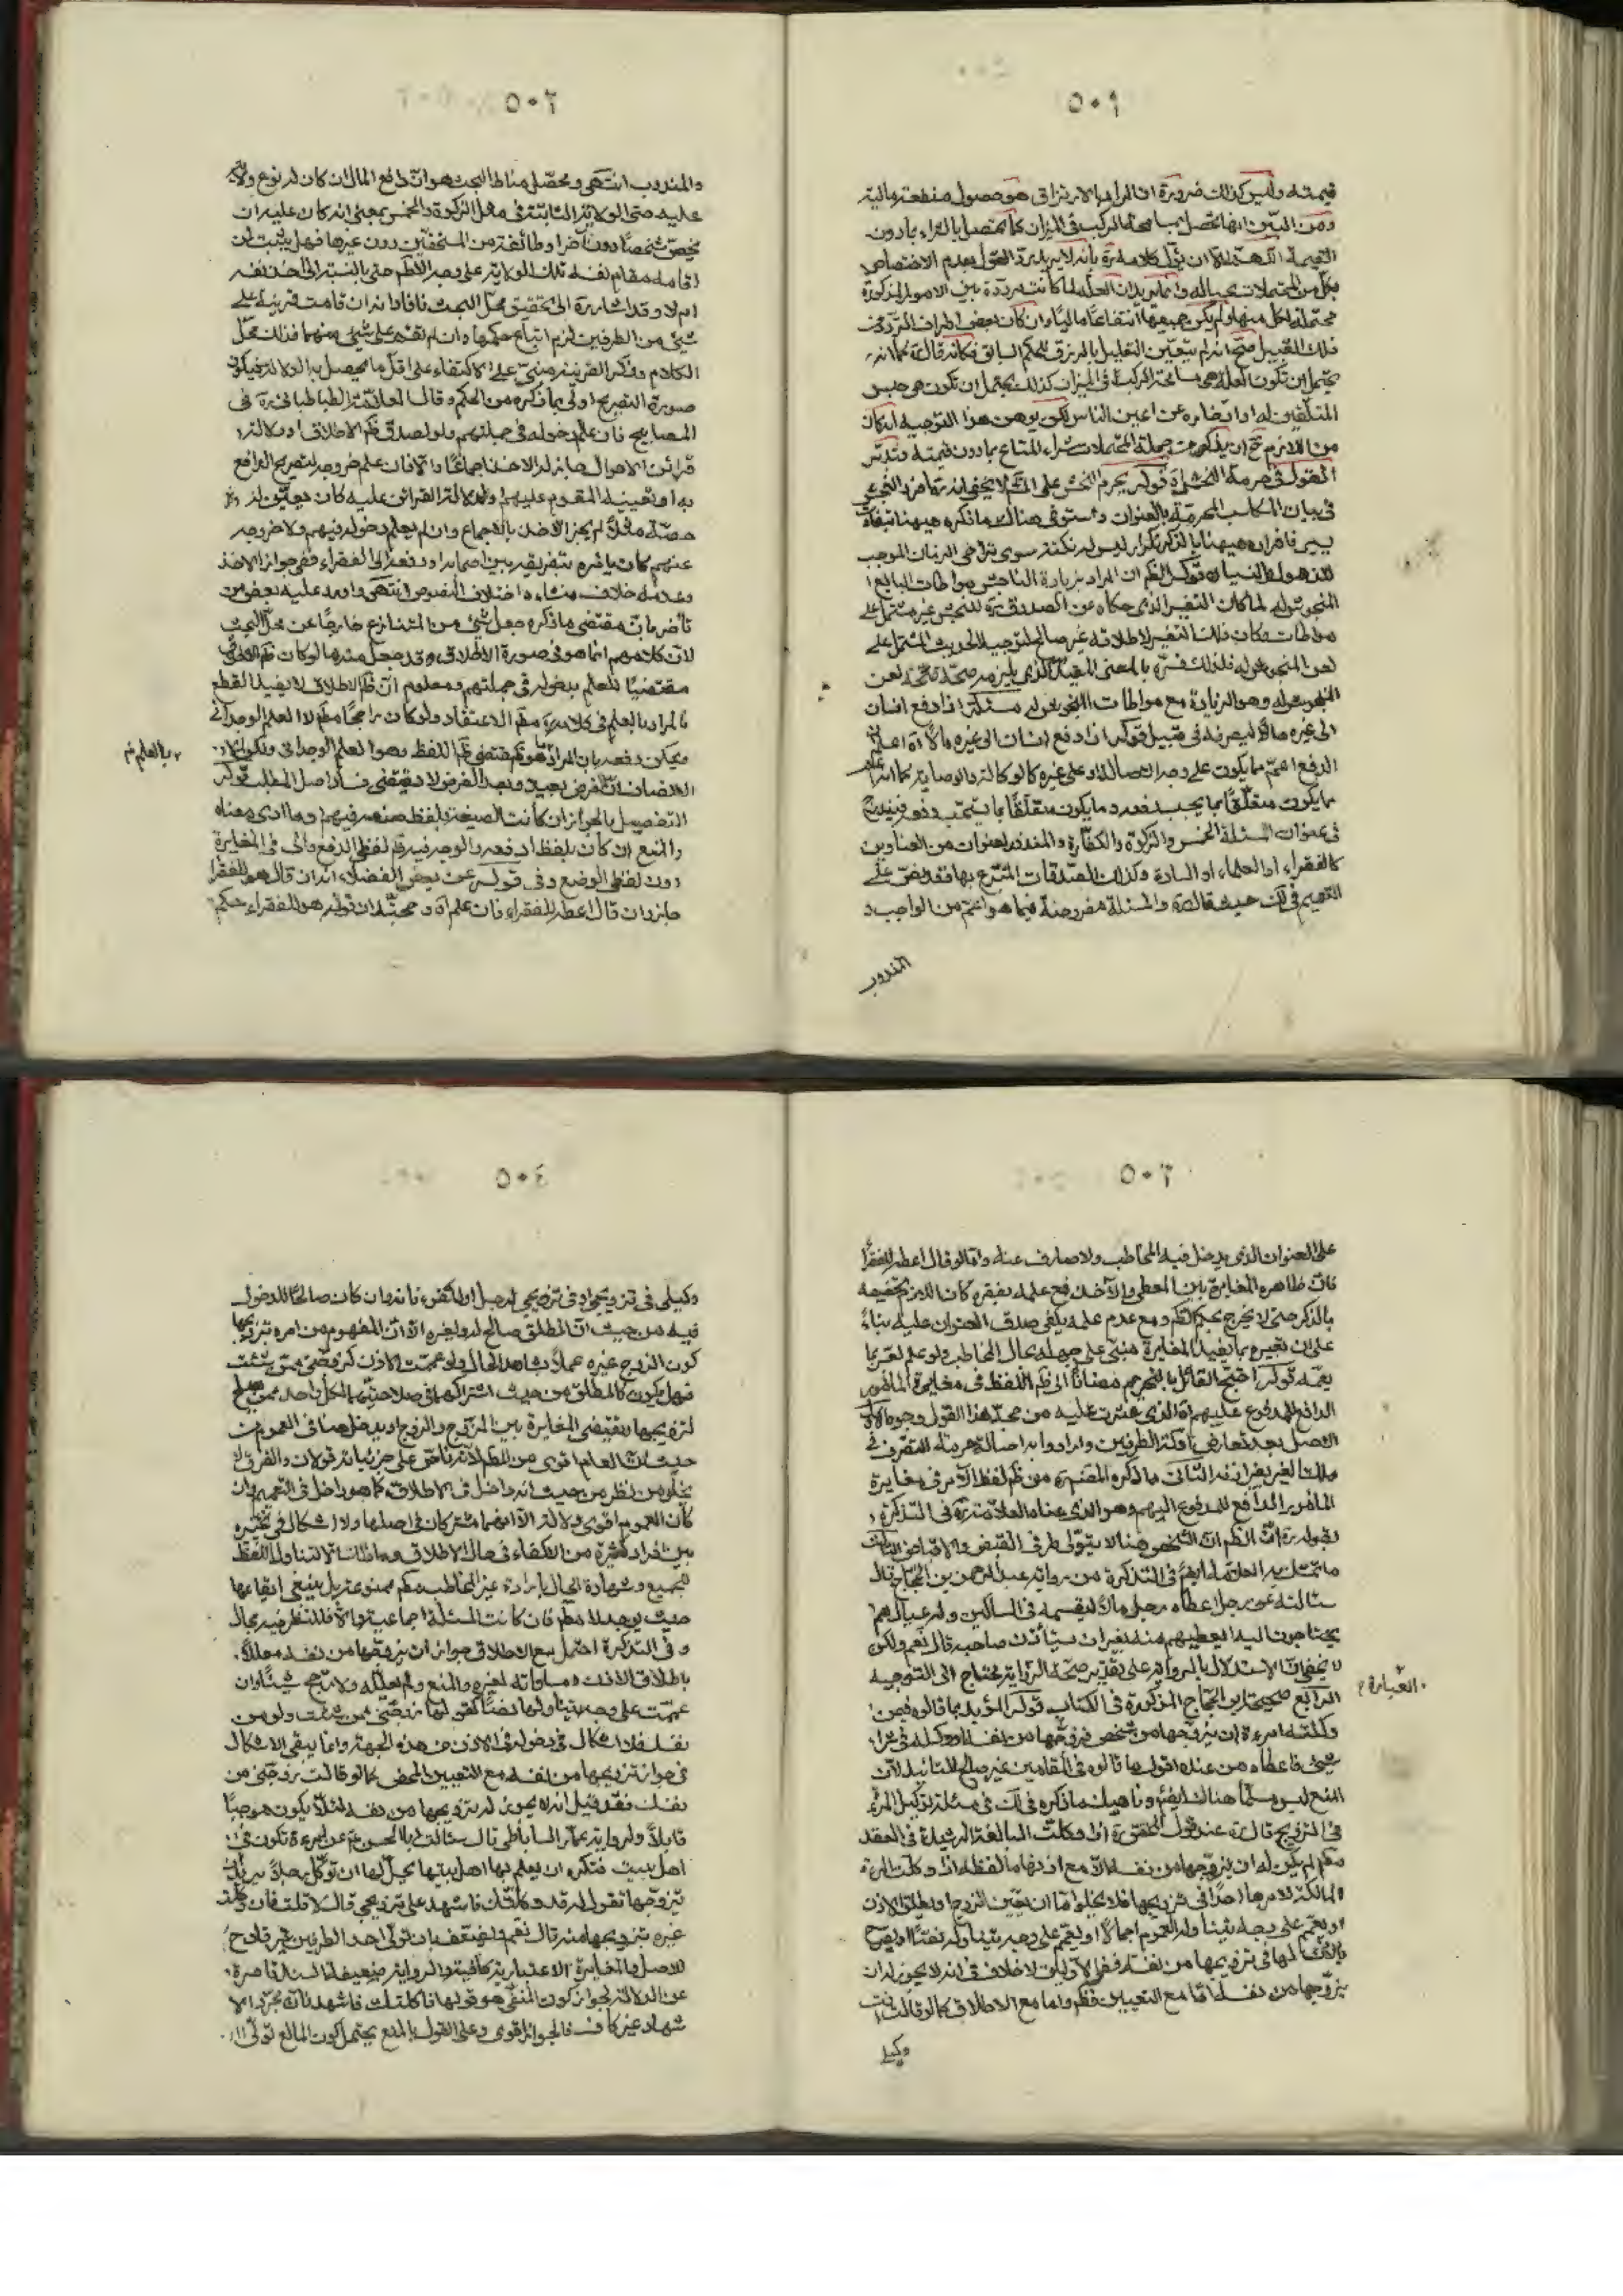 ٥٠١
قيمته وليس كذلك ضرورة ان المراد بالارتزاق هو حصول منفعة مالية
ومن البيّن انها تحصل بمسامحة الركب في الميزان كما تحصل بالشراء بما دون
القيمة اللهمّ الّا ان يؤل كلامه ره بأنه لا يريد به القول بعدم الاختصاص
بكل من المحتملات بحياله وانما يريد ان العلة لما كانت مرددة بين الامور المذكورة
محتملة لكل منها ولم يكن جميعها انتفاعا ماليا وان كان بعض اطراف الترديد من
ذلك القبيل صحّ انه لم يتعين التعليل بالرزق للحكم السابق فكانه قال كما انه
يحتمل ان تكون العلة هي مسامحة الركب في الميزان كذلك يحتمل ان تكون هي حبس
المتلقين له او ادخاره عن اعين الناس لكن يوهن هذا التوجيه انه كان
من اللازم ح ان يذكر من جملة المحتملات شراء المتاع بما دون قيمته فتدبّر
القول في حرمة النجش قوله يحرم النجش على المش لا يخفى انه قد افرد النجش
في بيان المكاسب المحرمة بالعنوان واستوفى هناك ما ذكره هيهنا بتفاوت
يسير فافراده هيهنا بالذكر تكرار ليس له نكتة سوى تراخي الزمان الموجب
للذهول والنسيان قوله الظم ان المراد بزيادة الناجش مواطات البايع
المنجوش له لما كان التفسير الذي حكاه عن الصدوق ره للنجش غير مشتمل على
مواطات وكان ذلك التفسير لاطلاقه غير صالح لتوجيه الحديث المشتمل على
لعن المنجوش له فلذلك فسّره بالمعنى المقيد الذي يلزمه صحة لعن
المنجوش له وهو الزيادة مع مواطات المنجوش له مسئلة اذا دفع انسان
الى غيره مالا ليصرفه في قبيل قوله اذا دفع انسان الى غيره مالا اه اعلم ان
الدفع اعمّ مما يكون على وجه الوصاية او على غيره كالوكالة والوصاية كما انه اعم
مما يكون متعلقا بما يجب دفعه وما يكون متعلقا بما يستحب دفعه فيندرج
في عنوان المسئلة الخمس والزكوة والكفارة والمنذور لعنوان من العناوين
كالفقراء او العلماء او السادة وكذلك الصدقات المتبرع بها فقد نص على
التعميم في لك حيث قال والمسئلة مفروضة فيما هو اعم من الواجب و
المندوب
٥٠٢
والمندوب انتهى ومحصّل مناط البحث هو انّ دافع المال ان كان له نوع ولاية
عليه حتى الولاية الثابتة في مثل الزكوة والخمس بمعنى انه كان عليه ان
يخص شخصا دون آخر او طائفة من المستحقين دون غيرها فهل يثبت لمن
اقامه مقام نفسه تلك الولاية على وجه الاطم حتى بالنسبة الى اخذ نفسه
ام لا وقد اشار ره الى تحقيق محلّ البحث فافاد انه ان قامت قرينة على
شيئ من الطرفين لزم اتباع حكمها وان لم تقم على شيئ منهما فذلك محلّ
الكلام وذكر القرينة مبني على الاكتفاء على اقل ما يحصل به الدلالة فيكون
صورة التصريح اولى بما ذكره من الحكم وقال العلامة الطباطبائي ره في
المصابيح فان علم دخوله في جملتهم ولو لصدق ظم الاطلاق او دلالة
قرائن الاحوال جاز له الاخذ اجماعا والّا فان علم خروجه لتصريح الدافع
به او تعيينه المقسوم عليهم او لدلالة القرائن عليه كان يعيّن له
حصّة مثلا لم يجز الاخذ بالاجماع وان لم يعلم دخوله فيهم ولا خروجه
عنهم كان يامره بتفريقه بين اصحابه او دفعه الى الفقراء ففي جواز الاخذ
وعدمه خلاف منشاءه اختلاف النصوص انتهى واورد عليه بعض من
تأخر بانّ مقتضى ما ذكره جعل شيئ من المتنازع خارجا عن محل البحث
لان كلامهم انما هو في صورة الاطلاق وقد جعل منه ما لو كان ظم الاطلاق
مقتضيا للعلم بدخوله في جملتهم ومعلوم ان ظم الاطلاق لا يفيد القطع
فالمراد بالعلم في كلامه ره مطم الاعتقاد ولو كان راجحا مطم لا العلم الوجداني
ويمكن دفعه بان المراد هو كم مقتضى ظم اللفظ وهو العلم الوجداني ولكن
الانصاف انّ الفرض بعيد وبعد الفرض لا يقتضي فساد اصل المطلب قوله
التفصيل بالجواز ان كانت الصيغة بلفظ ضعه فيهم وما ادى معناه
والمنع ان كان بلفظ ادفعه والوجه فيه ظم لفظ الدفع والى في المغايرة
دون لفظ الوضع وفي قوله عن بعض الفضلاء انه ان قال هو للفقراء
جاز وان قال اعطه للفقراء فان علم اه ومحصّله ان قوله هو للفقراء حكم
بالعلم م
٥٠٣
على العنوان الذي يدخل فيه المخاطب ولا صارف عنه واما لو قال اعطه للفقراء
فانّ ظاهره المغايرة بين المعطي والآخذ فمع علمه بفقره كان اللازم تخصيصه
بالذكر حتى لا يخرج بحكم الظم ومع عدم علمه يكفي صدق العنوان عليه بناءً
على ان تعبيره بما يفيد المغايرة مبني على جهله بحال المخاطب ولو علم لعبّر بما
يعمّه قوله احتج القائل بالتحريم مضافا الى ظم اللفظ في مغايرة المأمور
الدافع للمدفوع عليهم اه الذي عثرت عليه من حجة هذا القول وجوه الاول
الاصل بعد تعارض ادلة الطرفين وارادوا به اصالة حرمة التصرف في
ملك الغير بغير اذنه الثاني ما ذكره المصنف ره من ظم لفظ الامر في مغايرة
المأمور الدافع للمدفوع اليهم وهو الذي عناه العلامة ره في التذكرة
بقوله ره انّ الظم ان الشخص هنا لا يتولى طرفي القبض والاقباض الثالث
ما تمسّك به العلامة ايضا في التذكرة من رواية عبد الرحمن بن الحجاج قال
سئالته عن رجل اعطاه رجل مالا ليقسمه في المساكين وله عيال هم
يحتاجون اليه ايعطيهم منه بغير ان يستأذن صاحبه قال نعم ولكن
لا يخفى انّ الاستدلال بالرواية على تقدير صحة الرواية يحتاج الى التوجيه
الرابع صحيحة ابن الحجاج المذكورة في الكتاب قوله المؤيد بما قالوه فيمن
وكلته امرءة ان يزوجها من شخص فزوجها من نفسه او وكله في شراء
شيئ فاعطاه من عنده اقول ما قالوه في المقامين غير صالح للتأييد لان
المنع ليس مسلّما هناك ايضا وناهيك ما ذكره في لك في مسئلة توكيل المرئة
في التزويج قال ره عند قول المحقق ره اذا وكلت البالغة الرشيدة في العقد
مطم لم يكن له ان يزوجها من نفسه الّا مع اذنها ما لفظه اذا وكلت المرءة
المالكة لامرها احدا في تزويجها فلا يخلو امّا ان تعين الزوج او تطلق الاذن
او تعمّم على وجه يتناوله العموم اجمالا او تعمّم على وجه يتناوله نصّا او تصرّح
بالاذن لها في تزويجها من نفسه ففي الاول لا خلاف في انه لا يجوز له ان
يزوجها من نفسه امّا مع التعيين فظم واما مع الاطلاق كما لو قالت انت
وكيلي
العبارة
٥٠٤
وكيلي في تزويجي او في تزويجي لرجل او لكفو فانه وان كان صالحا للدخول
فيه من حيث انّ المطلق صالح له ولغيره الّا انّ المفهوم من امره تزويجها
كون الزوج غيره عملا بشاهد الحال ولو عممت الاذن كزوّجني ممن شئت
فهل يكون كالمطلق من حيث اشتراكهما في صلاحيتهما لكل واحد ممن يصلح
لتزويجها ويقتضي المغايرة بين المزوج والزوج او يدخل هنا في العموم من
حيث انّ العام اقوى من المطلق لانه ناص على جزئياته قولان والفرق لا
يخلو من نظر من حيث انه داخل في الاطلاق كما هو داخل في التعميم وان
كان العموم اقوى دلالة الّا انهما مشتركان في اصلها ولا اشكال في تخييره
بين افراد كثيرة من الاكفاء في حال الاطلاق وما ذاك الا لتناول اللفظ
للجميع وشهادة الحال بارادة غير المخاطب مطم ممنوعة بل ينبغي ايقاعها
حيث يوجد لا مطم فان كانت المسئلة اجماعية والّا فللنظر فيه مجال
وفي التذكرة احتمل مع الاطلاق جواز ان يزوجها من نفسه معللا
باطلاق الاذن ومساواته لغيره والمنع ولم يعلله ولا رجّح شيئا وان
عمّمت على وجه يتناوله نصّا كقولها زوّجني ممن شئت ولو من
نفسك فلا اشكال في دخوله في الاذن من هذه الجهة وانما يبقى الاشكال
في جواز تزويجها من نفسه مع التعيين المحض كما لو قالت زوّجني من
نفسك فقد قيل انه لا يجوز له تزويجها من نفسه لئلا يكون موجبا
قابلا ولرواية عمار الساباطي قال سئالت ابا الحسن ع عن امرءة تكون في
اهل بيت فتكره ان يعلم بها اهل بيتها يحلّ لها ان توكّل رجلا يريد
تزوجها تقول له قد وكلتك فاشهد على تزويجي قال لا قلت فان وكلت
غيره بتزويجها منه قال نعم ويضعّف بان تولّي احد الطرفين غير قادح
للاصل والمغايرة الاعتبارية كافية والرواية ضعيفة السند قاصرة
عن الدلالة لجواز كون المنفي هو قولها وكلتك فاشهد فان مجرّد الا
شهاد غير كاف فالجواز اقوى وعلى القول بالمنع يحتمل كون المانع تولّي